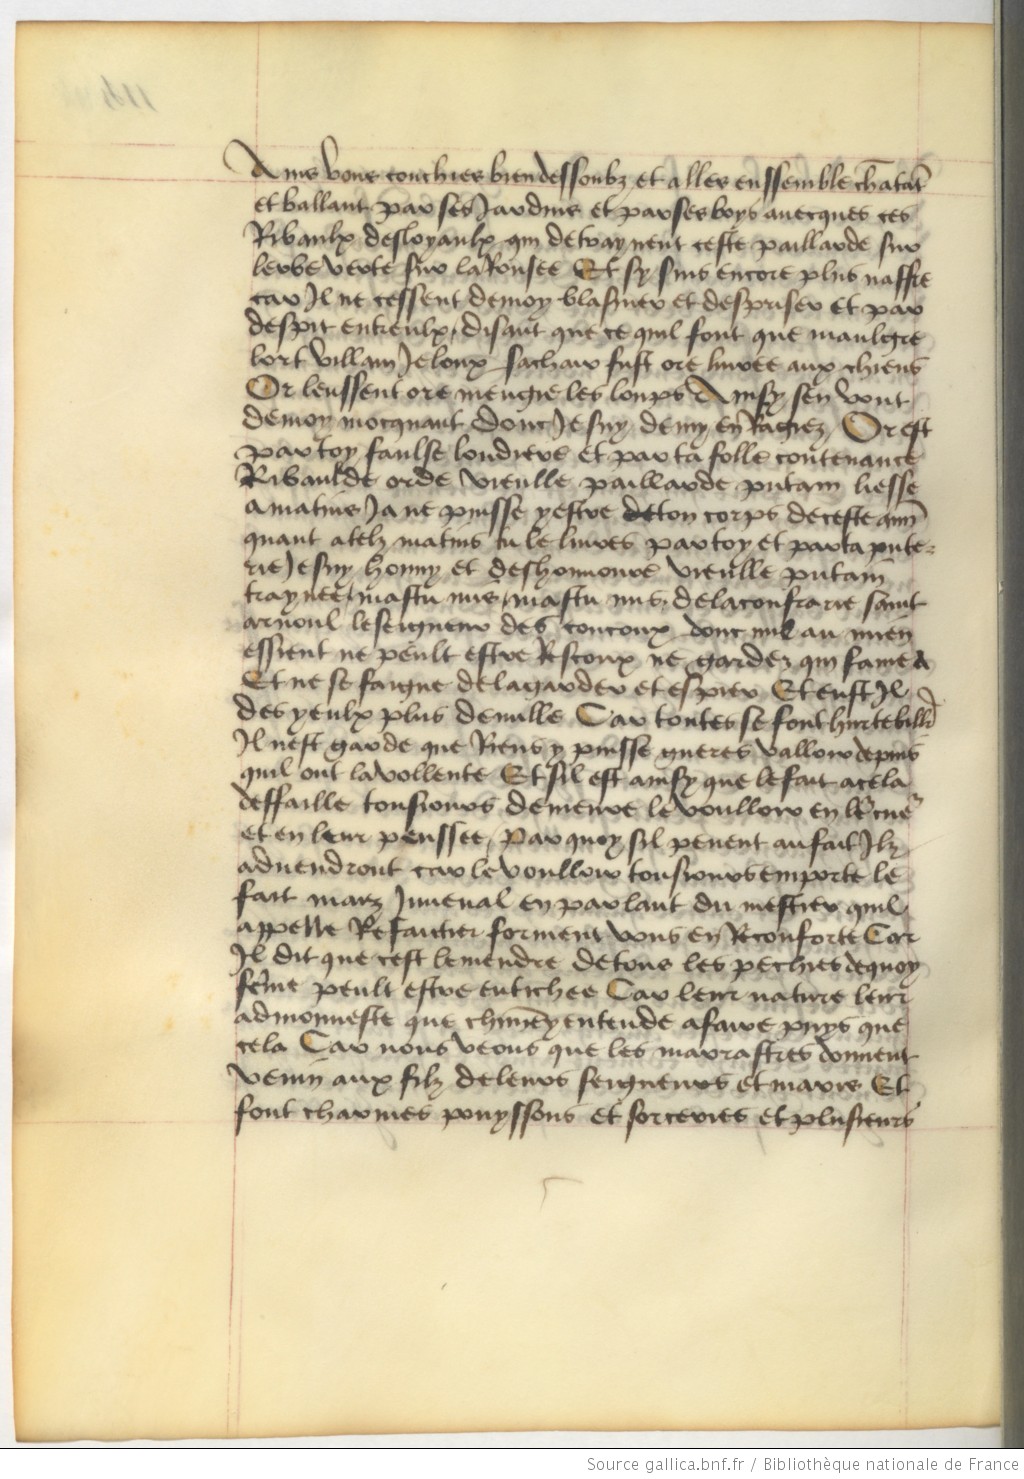 Ains vous couchies bien dessoubz et alles enssemble chātāt
et ballant par ses Jardins et par ses boys avecques ces
Ribaulx desloyaulx qui detraynent ceste paillarde sur
lerbe verte sur la Rousee Et sy suis encore plus naffre
car Il ne cessent de moy blasmer et despriser et par
despit entreulx disant que ce quil font que maulgre
lort villain Jeloux sachair fust ore livree aux chiens
Or leussent ore mengie les loups Ainsy sen vont
de moy mocquant donc Je suy demy enRagiez Or est
par toy faulse loudiere et par ta folle contenance
Ribaulde orde vieulle paillarde putain liesse
a matins Ja ne puisse yestre de ton corps de ceste
quant a telz matins tu le livres par toy et par ta pute-
rie Je suy honny et deshonnoure vieulle putain
traynee mas tu mis mas tu mis de la confrarie saint
arnoul le seigneur des coucoux donc nul au mien
essient ne peult estre Rescoux ne gardez qui fame A
Et ne se faigne de la garder et espier Et eust Il
des yeulx plus de mille Car toutes se font hurtebillr
Il nest garde que Riens y puisse gueres valloir depuis
quil ont la vollente Et sil est ainsy que le fait a cela
deffaille tousiours demeure le voulloir en lr cuer
et en leur penssee Par quoy sil peuent au fait Ilz
advendront car le voulloir tousiours emporte le
fait maiz Juvenal en parlant du mestier quil
appelle Refaitier forment vous en Reconforte Car
Il dit que cest le mendre de tous les pechies de quoy
fēme peult estre entichee Car leur nature leur
admonneste que entende a faire puys que
cela Car nous veons que les marrastres donnent
venin aux filz de leurs seigneurs et maris Et
font charmes pouyssons et sorceries et plusieurs
Source gallica.bnf.fr / Bibliothèque nationale de France